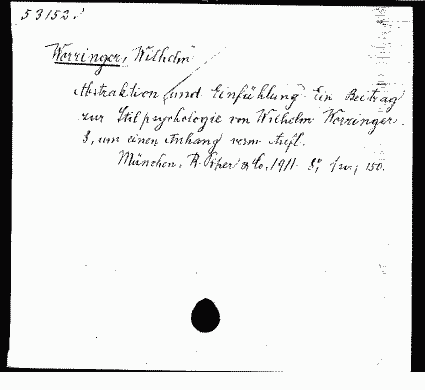 53152.
Worringer, Wilhelm
Abstraktion und Einfühlung Ein Beitrag
zur Stilpsychologie von Wilhelm Worringer.
3, um einen Anhang verm. Aufl.
München, R. Piper & Co, 1911. 8°, 150.